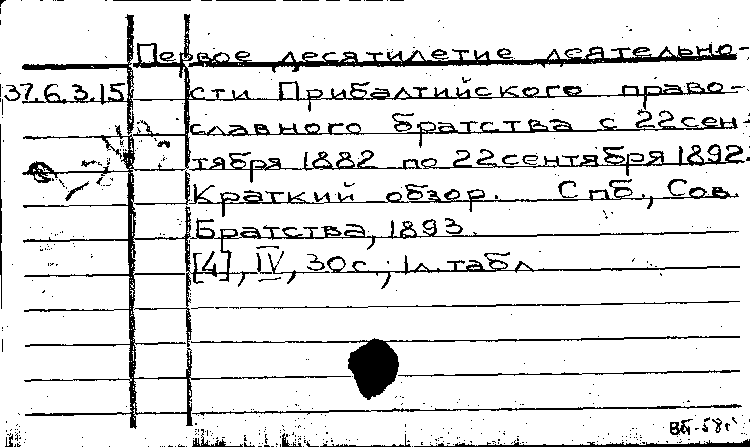 Первое десятилетие деятельно-
37.6.3.15 сти Прибалтийского право-
славного братства с 22 сен-
тября 1882 по 22 сентября 1892.
Краткий обзор. Спб., Сов.
Братства, 1893.
[4], IV, 30 с.; 1 л. табл